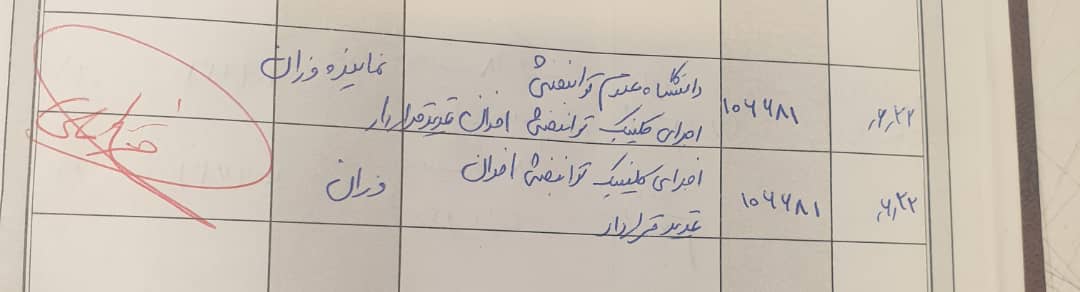 ۶,۲۲ ۱۰۶۶۸۱ دانشگاه علوم توانبخشی نماینده فزران
اجرای کلینیک توانبخشی افزان تمدید قرارداد
۶,۲۲ ۱۰۶۶۸۱ اجرای کلینیک توانبخشی افزان فزران
تمدید قرارداد